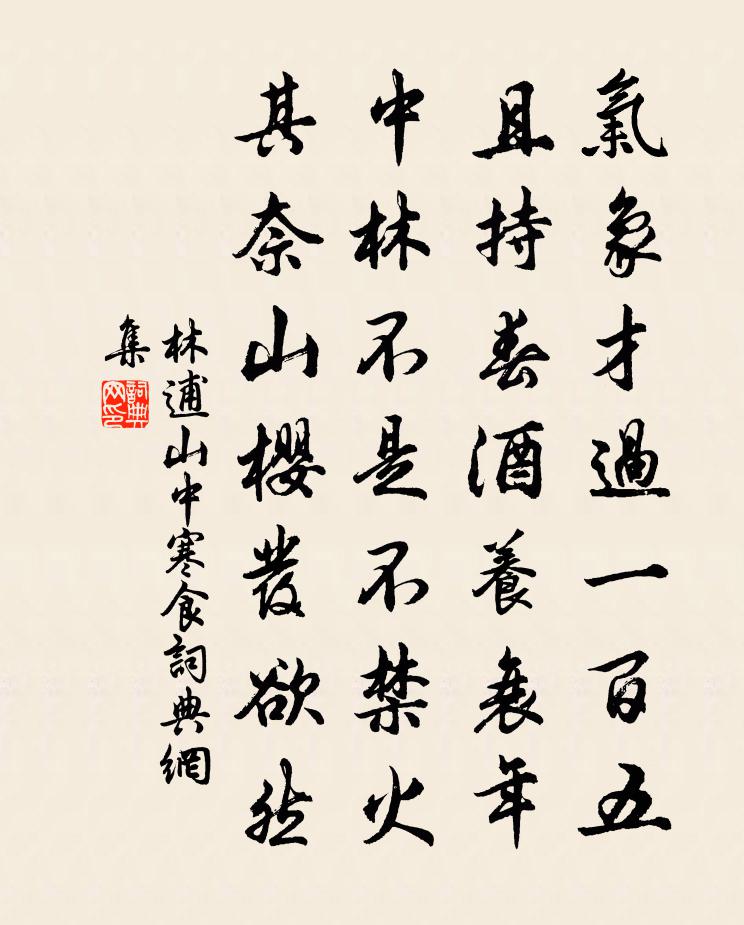 氣象才過一百五
且持春酒養衰年
中林不是不禁火
其奈山櫻發欲然
林逋山中寒食詞典網
集
詞典網印